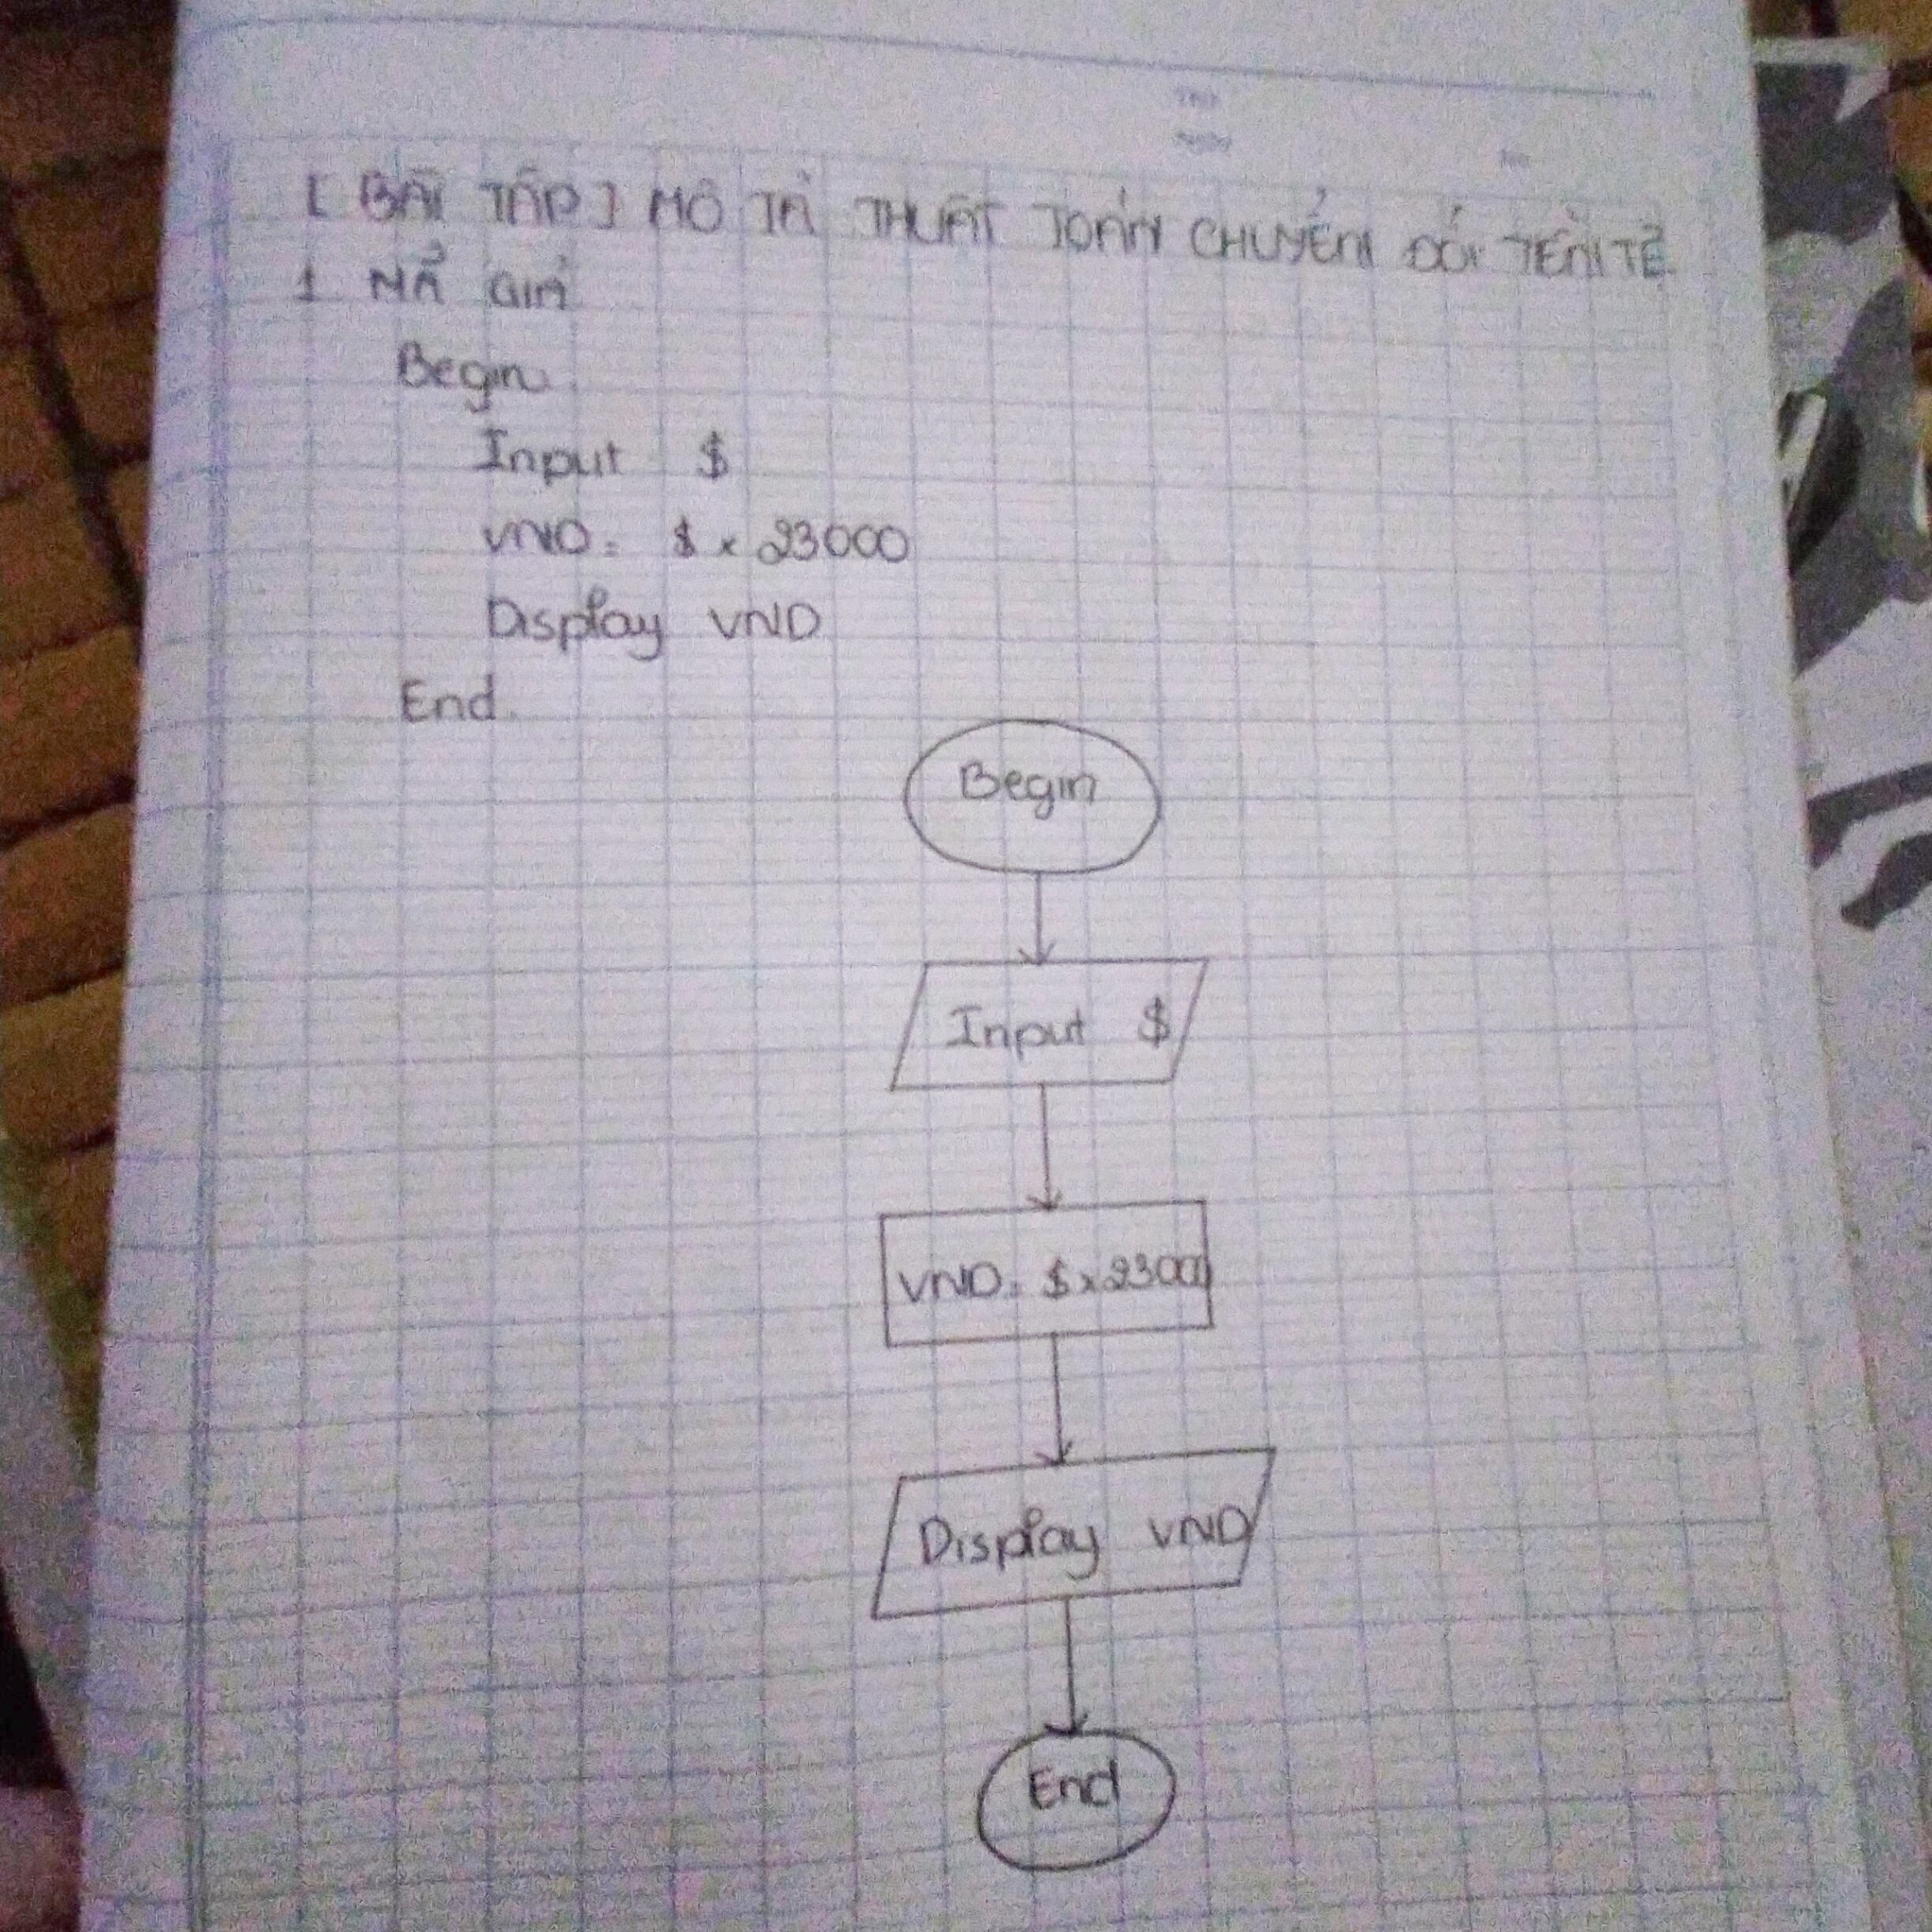 [ BÀI TẬP ] MÔ TẢ THUẬT TOÁN CHUYỂN ĐỔI TIỀN TỆ
1 MÃ GIẢ
Begin
Input $
VND = $ x 23000
Display VND
End
Begin
Input $
VND = $ x 23000
Display VND
End